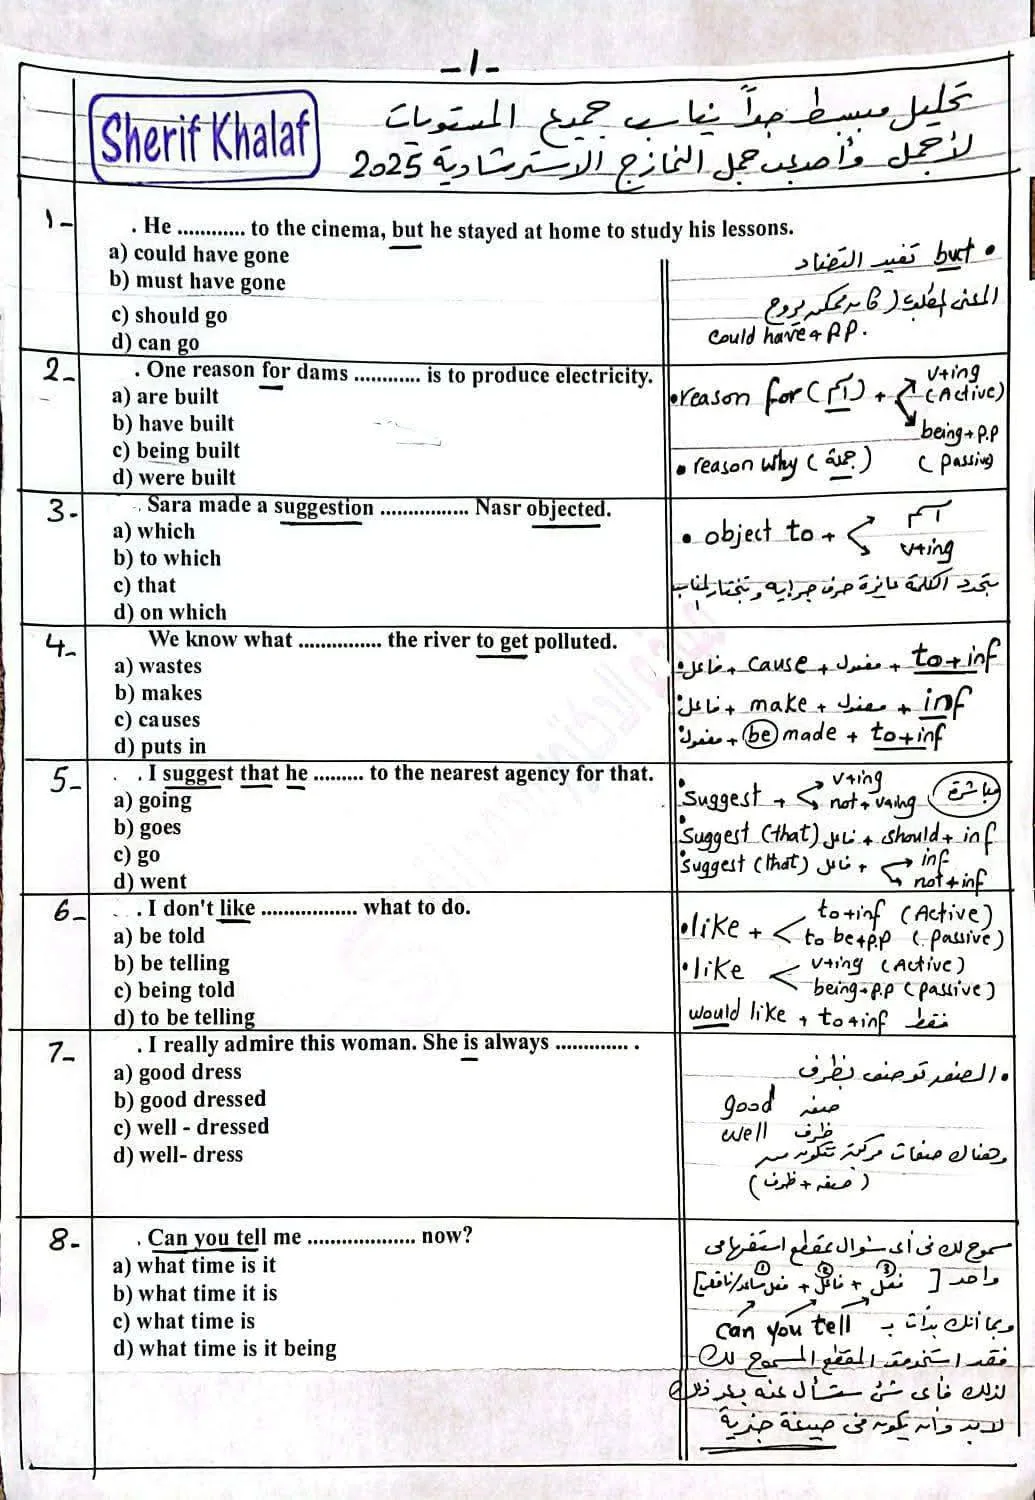 -1-
Sherif Khalaf
تحليل مبسط جداً يناسب جميع المستويات
لأجمل وأصعب جمل النماذج الاسترشادية 2025
1-
. He ............ to the cinema, but he stayed at home to study his lessons.
a) could have gone
b) must have gone
c) should go
d) can go
• but تفيد التضاد
المعنى المطلوب (كان ممكن يروح
could have + P.P.
2-
. One reason for dams ............ is to produce electricity.
a) are built
b) have built
c) being built
d) were built
• reason for (اسم) + v+ing (Active)
being + p.p (passive)
• reason why (جملة)
3-
. Sara made a suggestion ................ Nasr objected.
a) which
b) to which
c) that
d) on which
• object to + اسم
v+ing
بتحدد الكلمة عايزة حرف جر ايه وتختار المناسب
4-
We know what ............... the river to get polluted.
a) wastes
b) makes
c) causes
d) puts in
• فاعل + cause + مفعول + to+inf
• فاعل + make + مفعول + inf
• مفعول + be made + to+inf
5-
. . I suggest that he ......... to the nearest agency for that.
a) going
b) goes
c) go
d) went
• suggest + v+ing
not + v+ing
مباشرة
• suggest (that) فاعل + should + inf
• suggest (that) فاعل + inf
not + inf
6-
. . I don't like ................. what to do.
a) be told
b) be telling
c) being told
d) to be telling
• like + to+inf (Active)
to be+p.p (passive)
• like v+ing (Active)
being+p.p (passive)
would like + to+inf فقط
7-
. I really admire this woman. She is always ............. .
a) good dress
b) good dressed
c) well - dressed
d) well- dress
• الصفة توصف بظرف
good صفة
well ظرف
وهناك صفات مركبة تتكون من
(صفة + ظرف)
8-
. Can you tell me ................... now?
a) what time is it
b) what time it is
c) what time is
d) what time is it being
مسموح لك فى أى سؤال بمقطع استفهامى
واحد [فعل + فاعل + فعل مساعد/ناقص]
1 2 3
وبما أنك بدأت بـ can you tell
فقد استخدمت المقطع المسموح لك
لذلك فأى شئ ستسأل عنه بعد ذلك
لابد وأن يكون فى صيغة خبرية